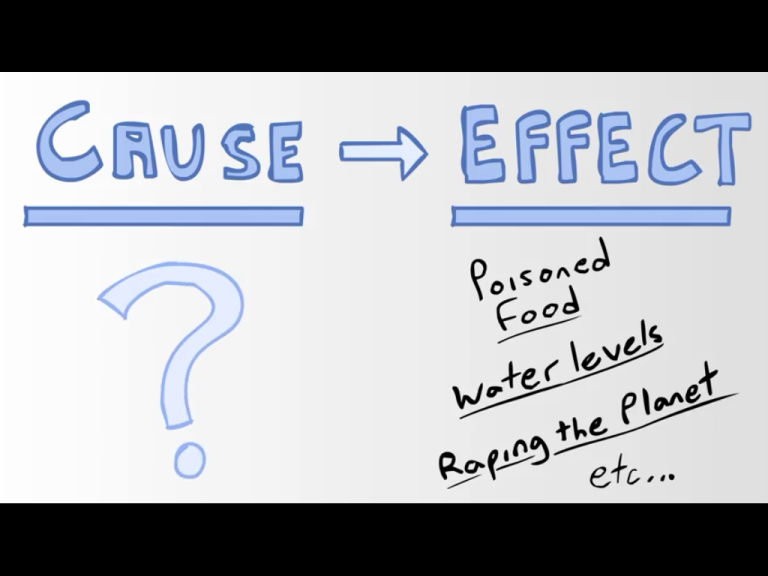 CAUSE → EFFECT
?
Poisoned
Food
Water levels
Raping the Planet
etc...